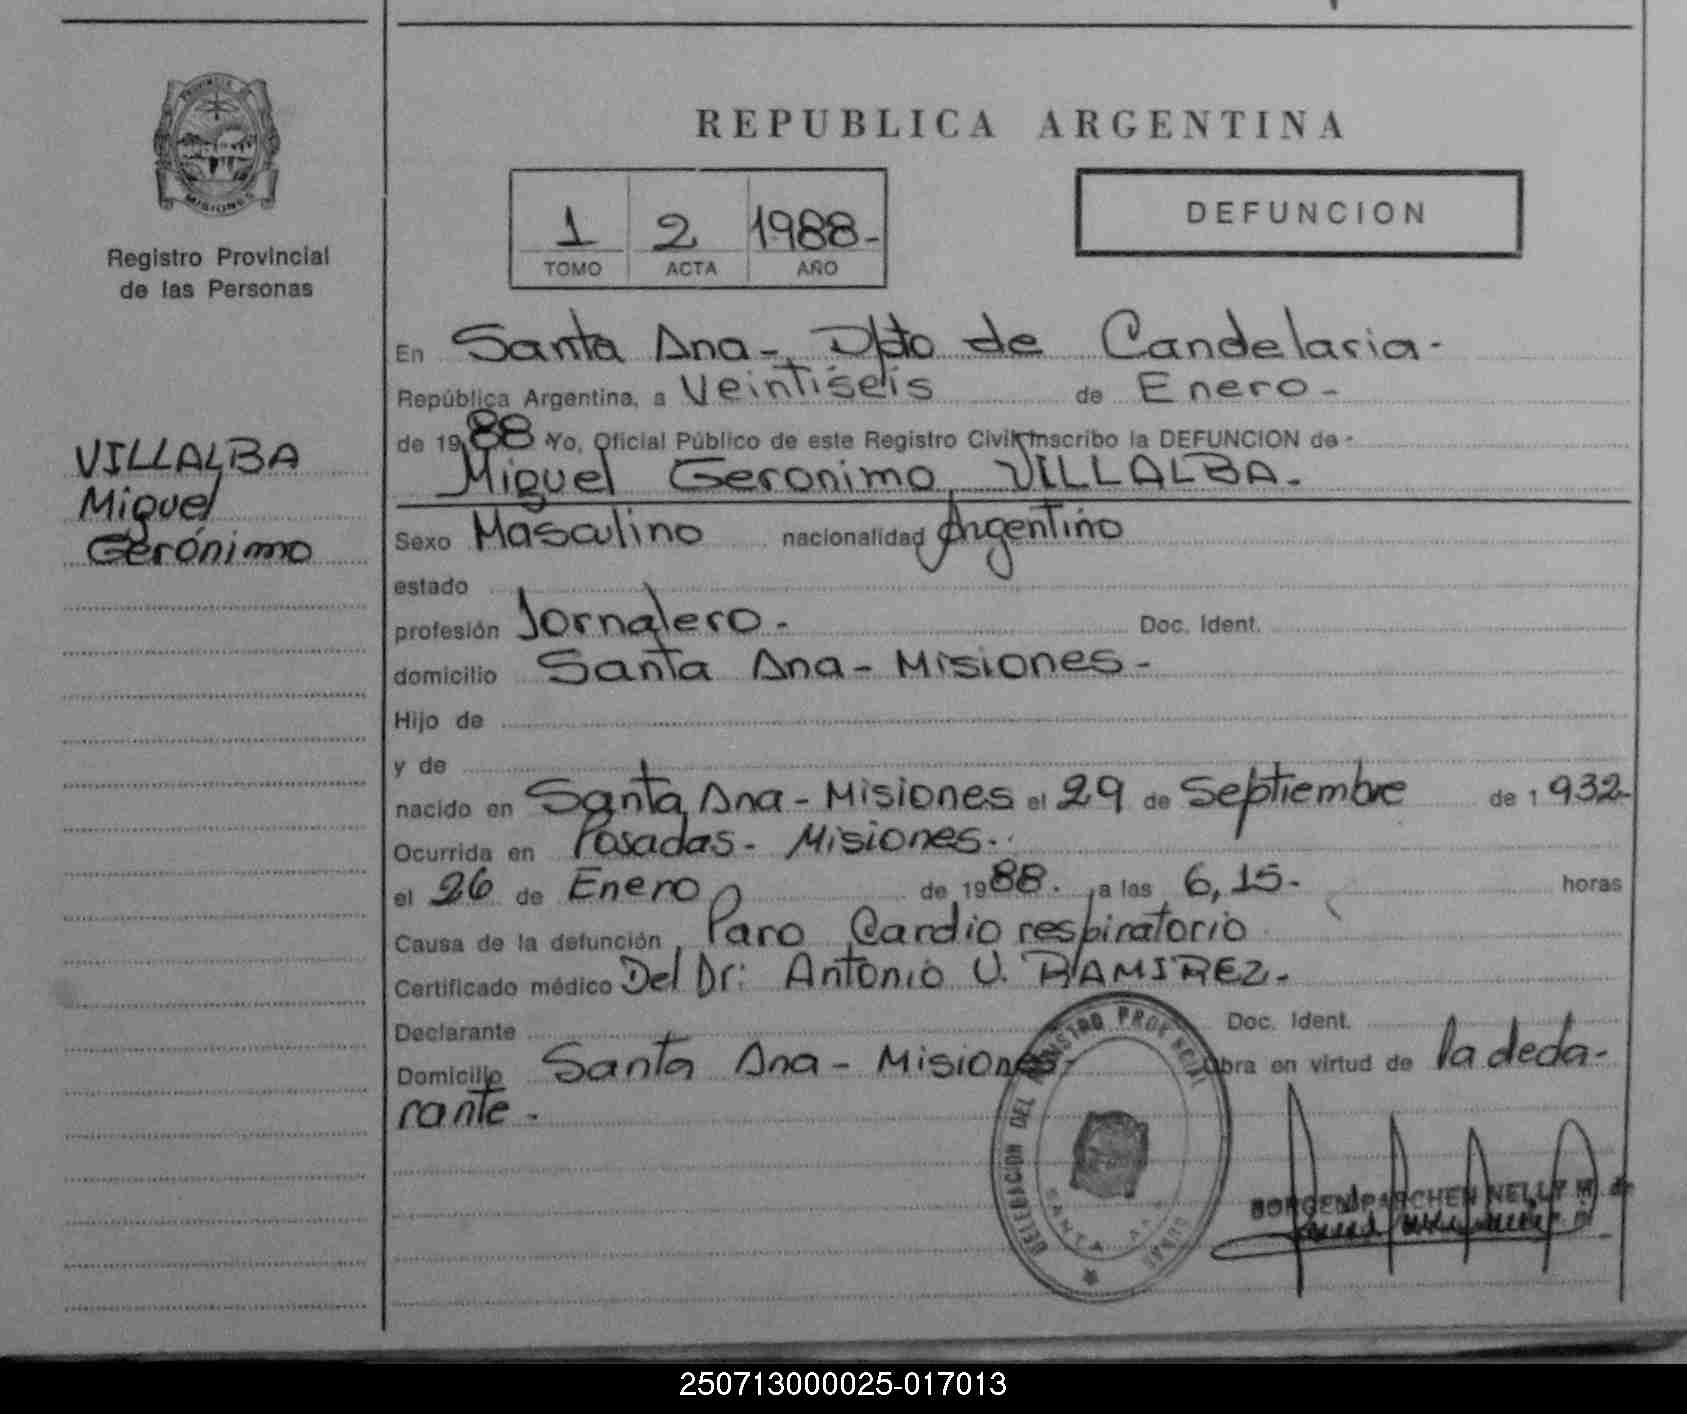 PROVINCIA DE
MISIONES
Registro Provincial
de las Personas
VILLALBA
Miguel
Gerónimo
REPUBLICA ARGENTINA
1 2 1988-
TOMO ACTA AÑO
DEFUNCION
En Santa Ana-, Dpto de Candelaria-
República Argentina, a Veintiseis de Enero-
de 1988 Yo, Oficial Público de este Registro Civil, inscribo la DEFUNCION de -
Miguel Geronimo VILLALBA.
Sexo Masculino nacionalidad Argentino
estado
profesión Jornalero- Doc. Ident.
domicilio Santa Ana- Misiones-
Hijo de
y de
nacido en Santa Ana- Misiones el 29 de Septiembre de 1932-
Ocurrida en Posadas- Misiones-
el 26 de Enero de 1988. a las 6,15- horas
Causa de la defunción Paro Cardio respiratorio
Certificado médico Del Dr: Antonio U. RAMIREZ-
Declarante Doc. Ident.
Domicilio Santa Ana- Misiones- Obra en virtud de la decla-
rante-
DELEGACION DEL REGISTRO PROVINCIAL
SANTA ANA
NELLY M. de
250713000025-017013